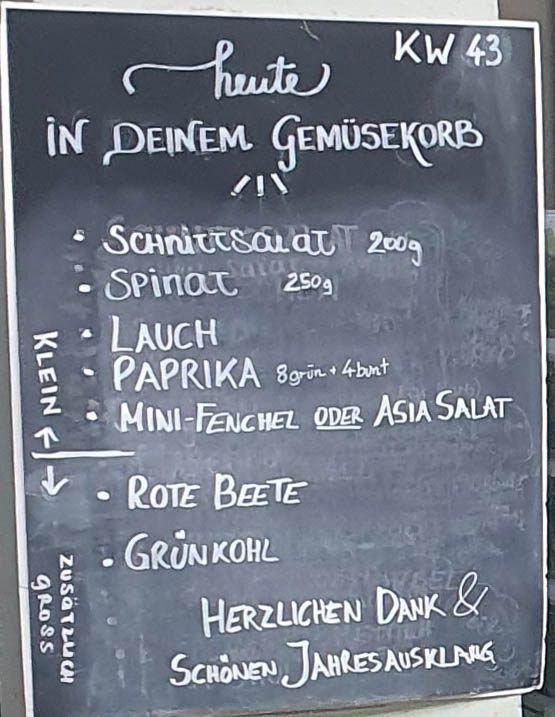 KW 43
heute
IN DEINEM GEMÜSEKORB
• SCHNITTSALAT 200g
• SPINAT 250g
• LAUCH
• PAPRIKA 8 grün + 4 bunt
• MINI-FENCHEL ODER ASIA SALAT
KLEIN ←
→
• ROTE BEETE
• GRÜNKOHL
ZUSÄTZLICH
GROSS
HERZLICHEN DANK &
SCHÖNEN JAHRESAUSKLANG